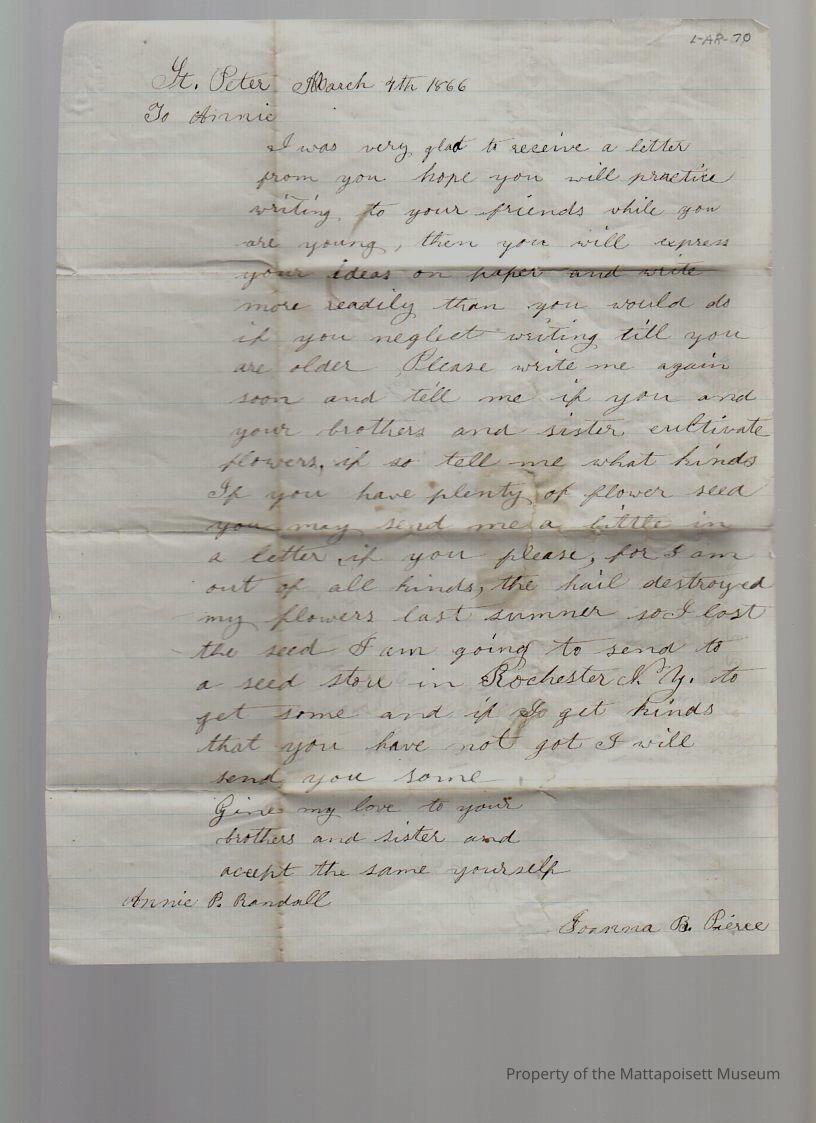 L-AR-70
St. Peter March 9th 1866
To Annie
I was very glad to receive a letter
from you hope you will practice
writing, to your friends while you
are young, then you will express
your ideas on paper and write
more readily than you would do
if you neglect writing till you
are older Please write me again
soon and tell me if you and
your brothers and sister cultivate
flowers, if so tell me what kinds
If you have plenty of flower seed
you may send me a little in
a letter if you please, for I am
out of all kinds, the hail destroyed
my flowers last summer so I lost
the seed I am going to send to
a seed store in Rochester N. Y. to
get some and if I get kinds
that you have not got I will
send you some
Give my love to your
brothers and sister and
accept the same yourself
Annie P. Randall
Joanna B. Pierce
Property of the Mattapoisett Museum